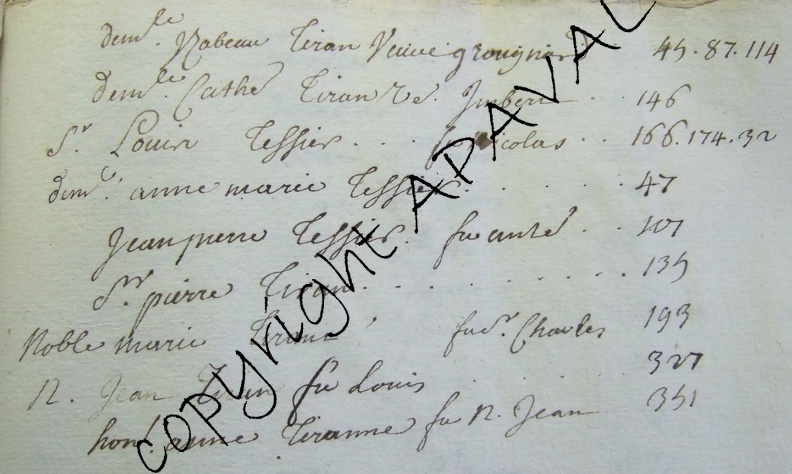 dem.le Isabeau Tiran Veuve grougnard 45.87.114
dem.le Cathe Tiran Ve. Imbert .. 146
Sr Louis Tessier ... fu Nicolas .. 166.174.32
dem.le anne marie Tessier ..... 47
Jean pierre Tessier. fu anté .. 107
Sr. pierre Tiran ........ 135
Noble marie Tiranne fu Sr. Charles 193
N. Jean Tiran fu Louis 327
hon.t anne Tiranne fu N. Jean 351
copyright APAVAL